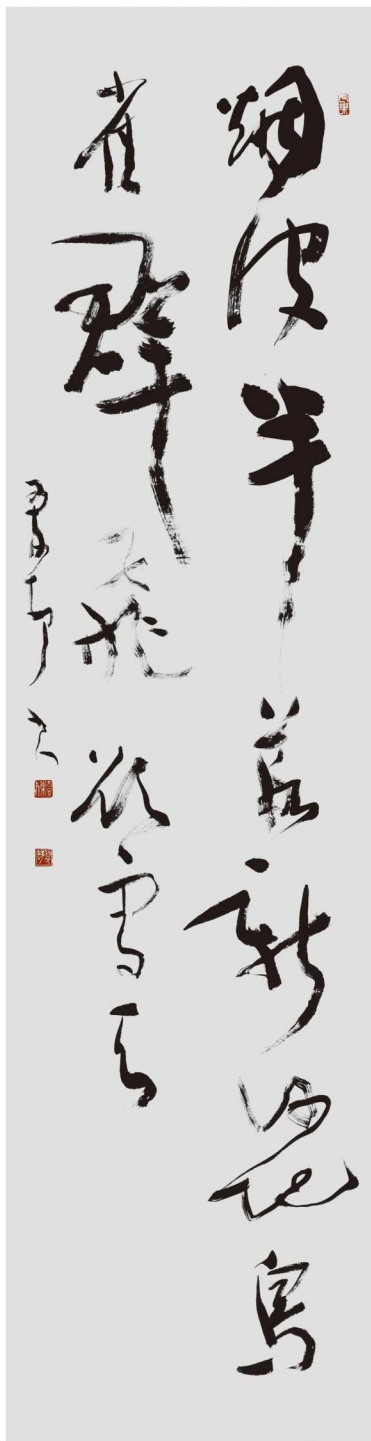 烟波半落新沙地鳥
雀群飛欲雪天